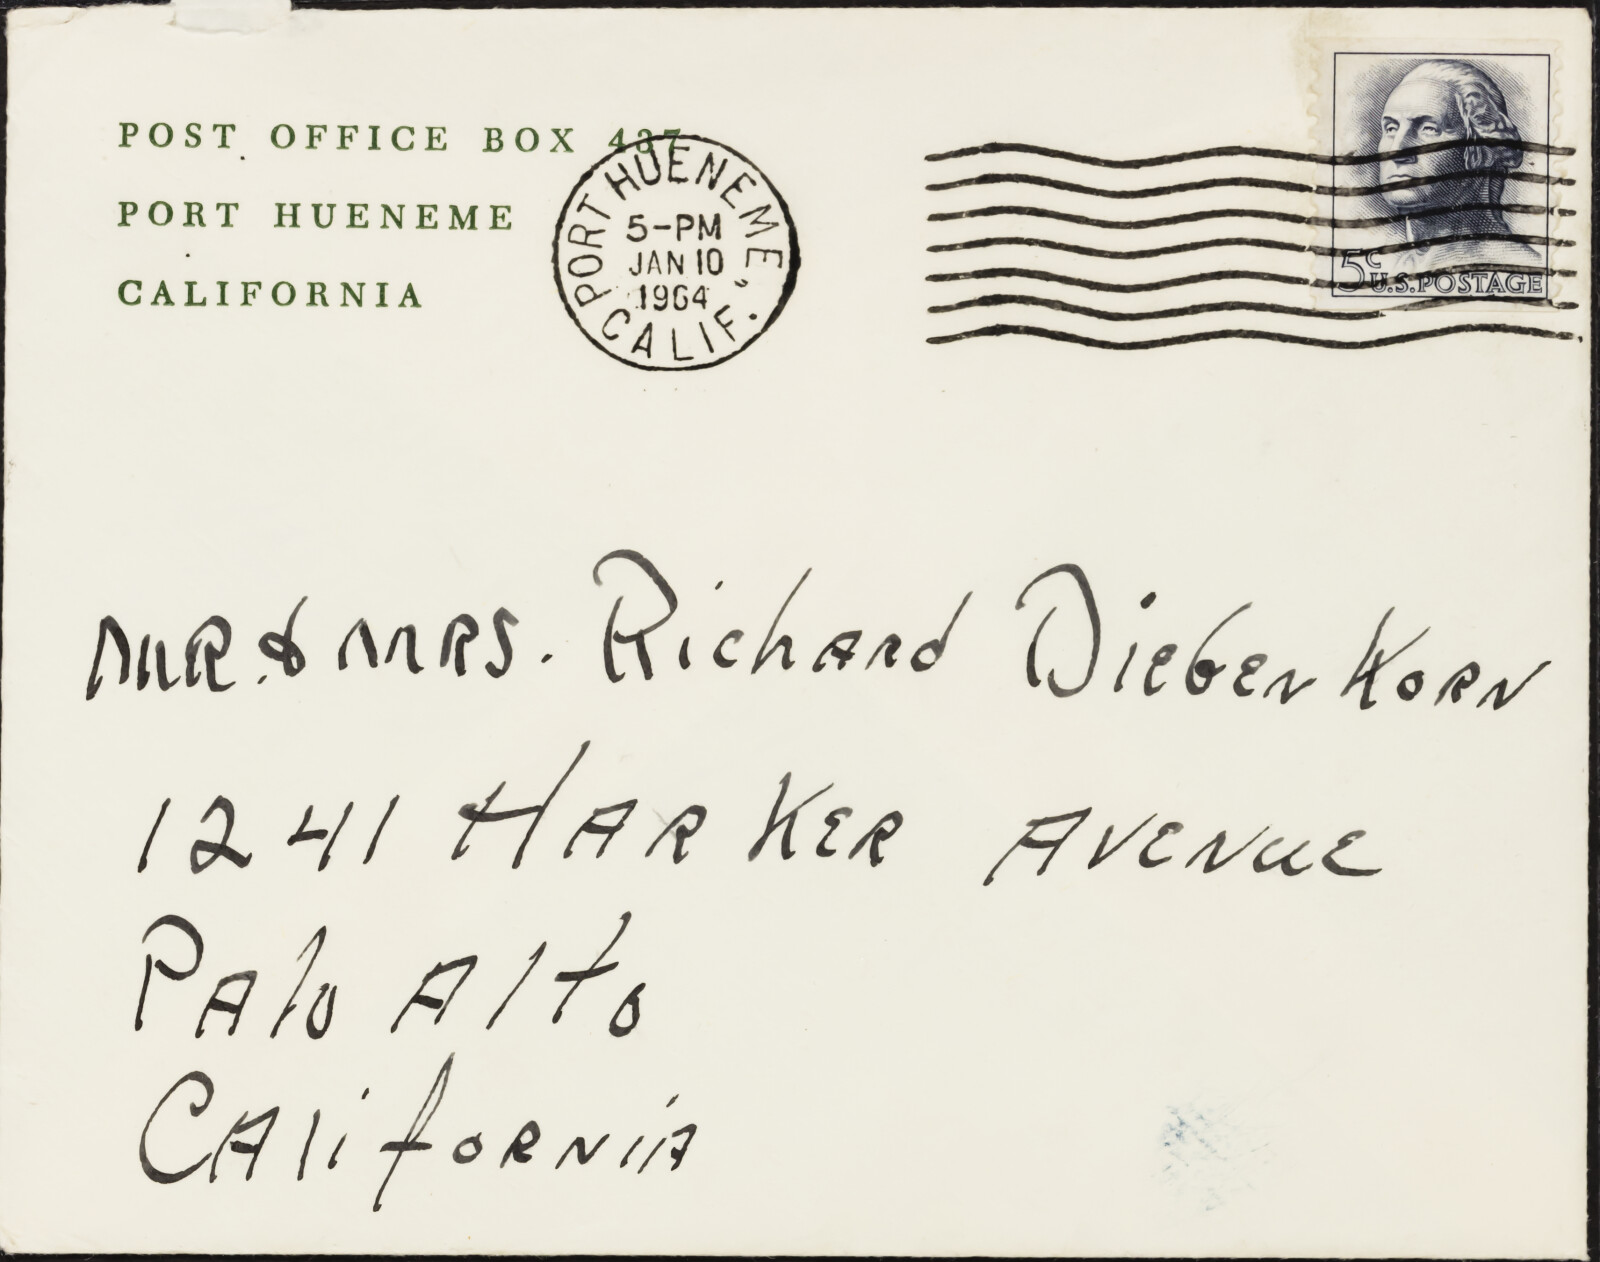 POST OFFICE BOX 437
PORT HUENEME
CALIFORNIA
PORT HUENEME, CALIF.
5-PM
JAN 10
1964
5c
U.S. POSTAGE
MR. & MRS. Richard Diebenkorn
1241 Harker Avenue
Palo Alto
California